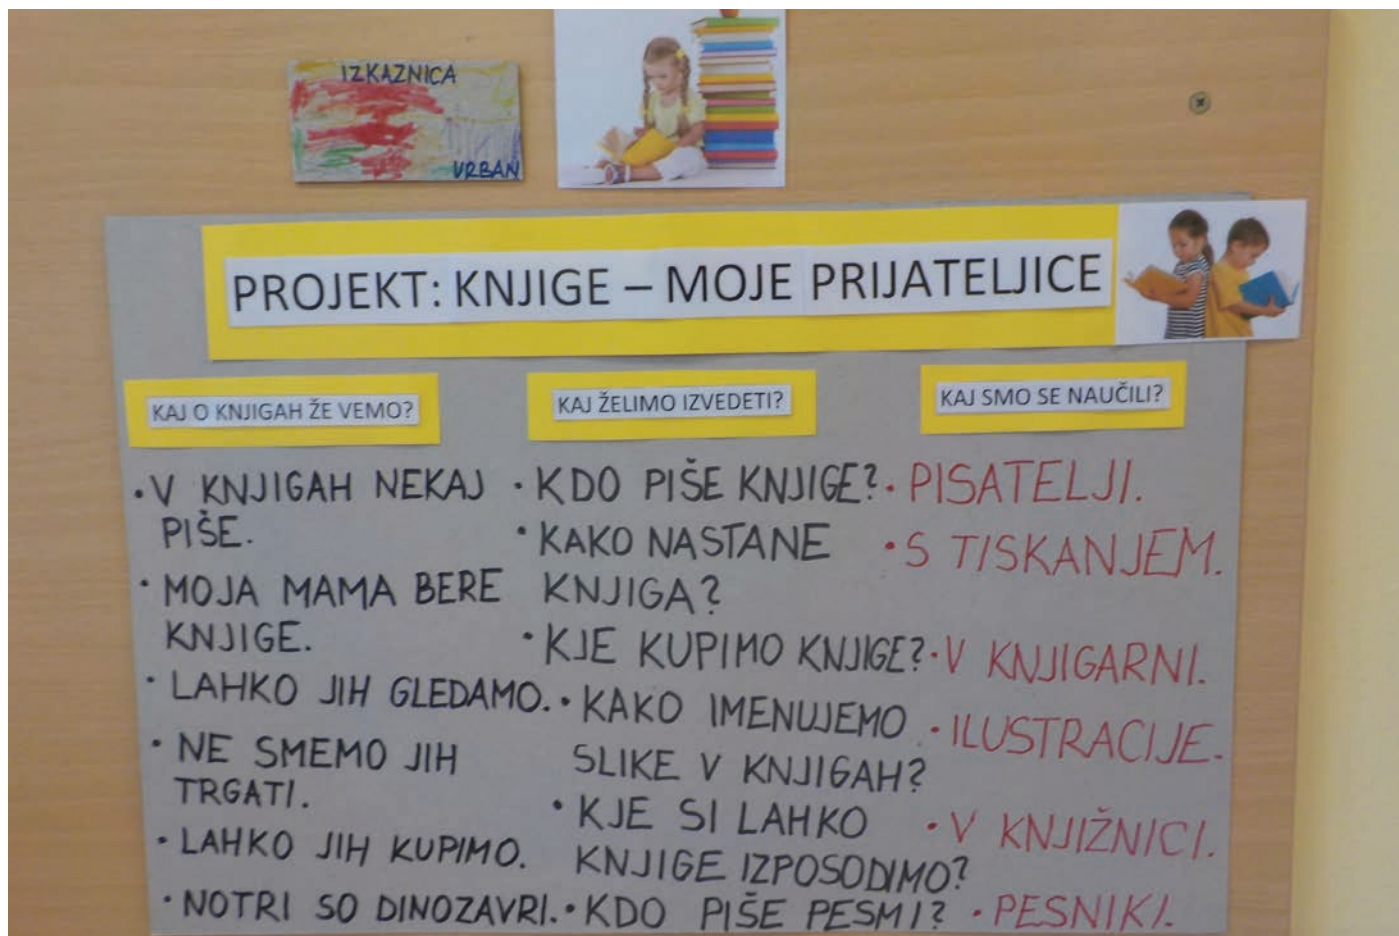 IZKAZNICA
URBAN
PROJEKT: KNJIGE – MOJE PRIJATELJICE
KAJ O KNJIGAH ŽE VEMO?
• V KNJIGAH NEKAJ
PIŠE.
• MOJA MAMA BERE
KNJIGE.
• LAHKO JIH GLEDAMO.
• NE SMEMO JIH
TRGATI.
• LAHKO JIH KUPIMO.
• NOTRI SO DINOZAVRI.
KAJ ŽELIMO IZVEDETI?
• KDO PIŠE KNJIGE?
• KAKO NASTANE
KNJIGA?
• KJE KUPIMO KNJIGE?
• KAKO IMENUJEMO
SLIKE V KNJIGAH?
• KJE SI LAHKO
KNJIGE IZPOSODIMO?
• KDO PIŠE PESMI?
KAJ SMO SE NAUČILI?
• PISATELJI.
• S TISKANJEM.
• V KNJIGARNI.
• ILUSTRACIJE.
• V KNJIŽNICI.
• PESNIKI.